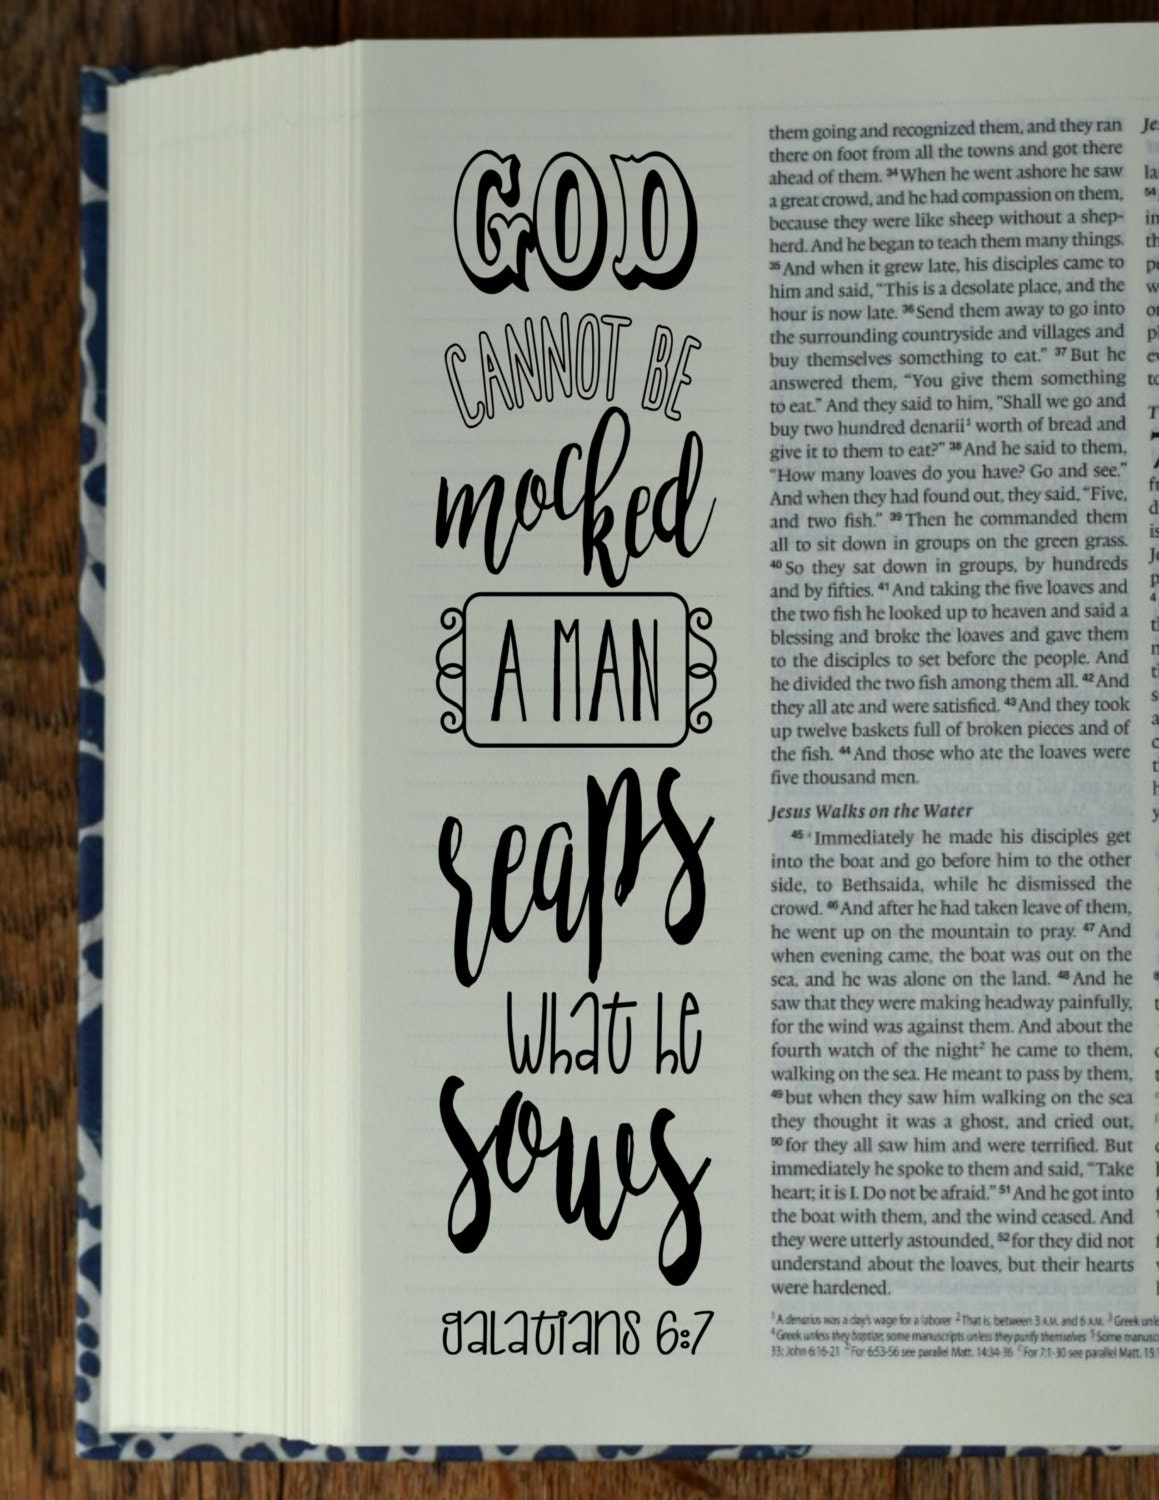 GOD
CANNOT BE
mocked
A MAN
reaps
what he
sows
galatians 6:7
them going and recognized them, and they ran
there on foot from all the towns and got there
ahead of them. 34 When he went ashore he saw
a great crowd, and he had compassion on them,
because they were like sheep without a shep-
herd. And he began to teach them many things.
35 And when it grew late, his disciples came to
him and said, “This is a desolate place, and the
hour is now late. 36 Send them away to go into
the surrounding countryside and villages and
buy themselves something to eat.” 37 But he
answered them, “You give them something
to eat.” And they said to him, “Shall we go and
buy two hundred denarii1 worth of bread and
give it to them to eat?” 38 And he said to them,
“How many loaves do you have? Go and see.”
And when they had found out, they said, “Five,
and two fish.” 39 Then he commanded them
all to sit down in groups on the green grass.
40 So they sat down in groups, by hundreds
and by fifties. 41 And taking the five loaves and
the two fish he looked up to heaven and said a
blessing and broke the loaves and gave them
to the disciples to set before the people. And
he divided the two fish among them all. 42 And
they all ate and were satisfied. 43 And they took
up twelve baskets full of broken pieces and of
the fish. 44 And those who ate the loaves were
five thousand men.
Jesus Walks on the Water
45 Immediately he made his disciples get
into the boat and go before him to the other
side, to Bethsaida, while he dismissed the
crowd. 46 And after he had taken leave of them,
he went up on the mountain to pray. 47 And
when evening came, the boat was out on the
sea, and he was alone on the land. 48 And he
saw that they were making headway painfully,
for the wind was against them. And about the
fourth watch of the night2 he came to them,
walking on the sea. He meant to pass by them,
49 but when they saw him walking on the sea
they thought it was a ghost, and cried out,
50 for they all saw him and were terrified. But
immediately he spoke to them and said, “Take
heart; it is I. Do not be afraid.” 51 And he got into
the boat with them, and the wind ceased. And
they were utterly astounded, 52 for they did not
understand about the loaves, but their hearts
were hardened.
1 A denarius was a day's wage for a laborer 2 That is, between 3 A.M. and 6 A.M. 3 Greek
4 Greek unless they baptize; some manuscripts unless they purify themselves 5 Some
33; John 6:16-21 For 6:53-56 see parallel Matt. 14:34-36 For 7:1-30 see parallel Matt.